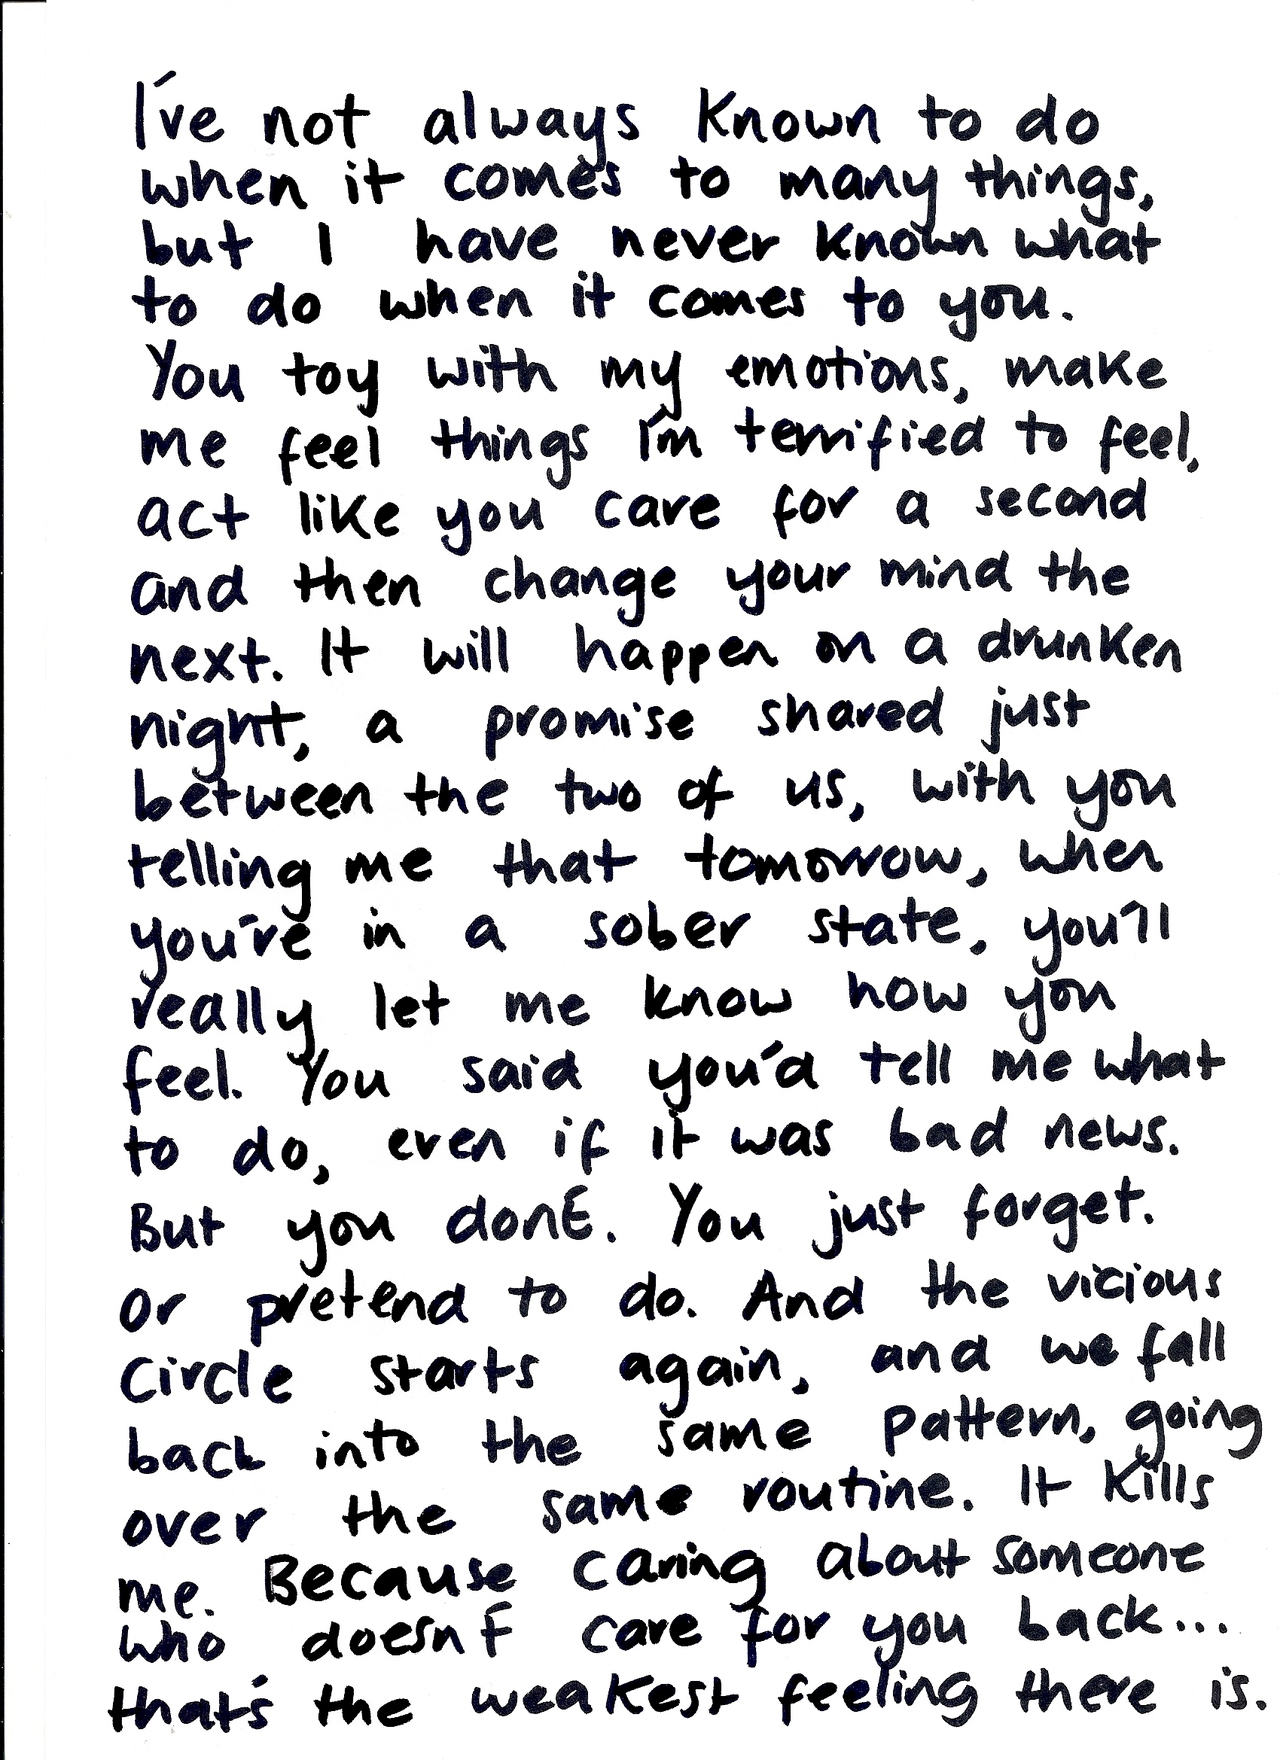 I've not always known to do
when it comes to many things,
but I have never known what
to do when it comes to you.
You toy with my emotions, make
me feel things I'm terrified to feel,
act like you care for a second
and then change your mind the
next. It will happen on a drunken
night, a promise shared just
between the two of us, with you
telling me that tomorrow, when
you're in a sober state, you'll
really let me know how you
feel. You said you'd tell me what
to do, even if it was bad news.
But you don't. You just forget.
Or pretend to do. And the vicious
circle starts again, and we fall
back into the same pattern, going
over the same routine. It kills
me. Because caring about someone
who doesn't care for you back...
that's the weakest feeling there is.